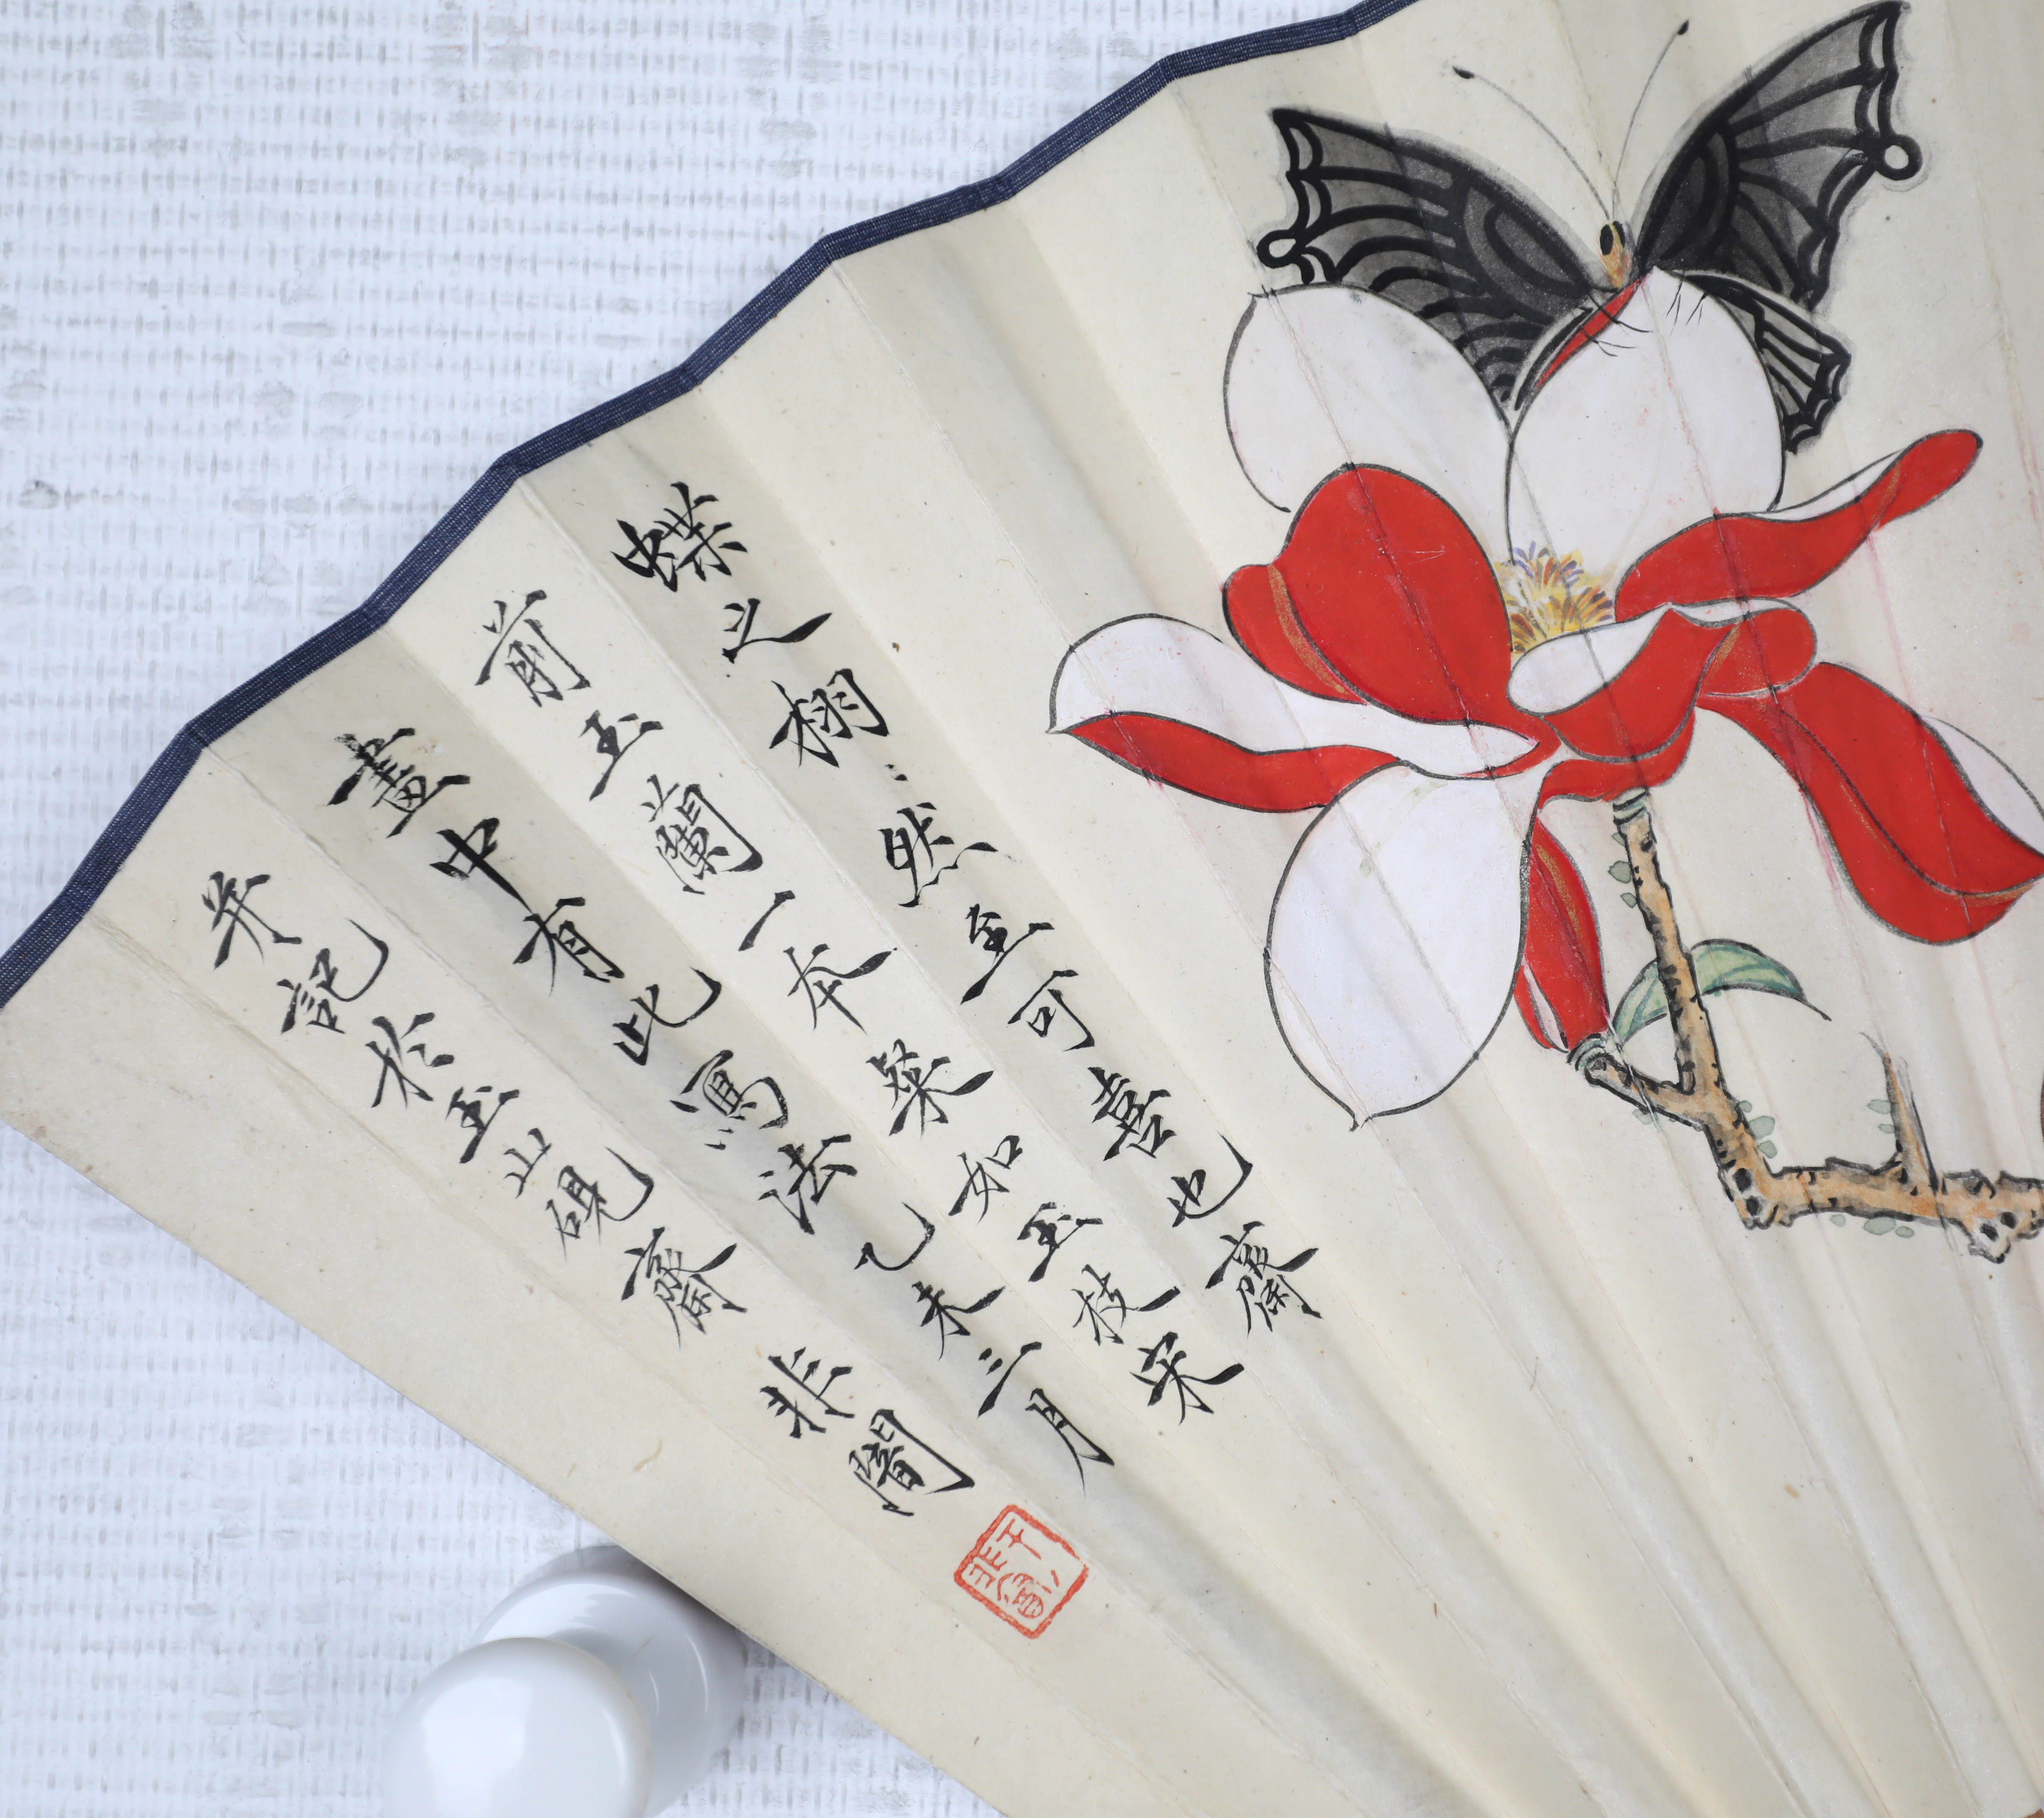 蝶之栩〻然至可喜也齋
前玉蘭一本粲如玉枝宋
畫中有此寫法己未三月
并記於玉山硯齋 非闇
于非闇